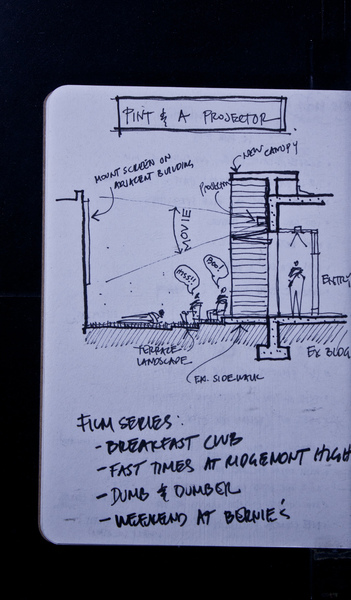 PINT & A PROJECTOR
NEW CANOPY
MOUNT SCREEN ON
ADJACENT BUILDING
PROJECTOR
MOVIE
PSSS!!
BOO!
ENTRY
TERRACE
LANDSCAPE
EX. SIDEWALK
EX BLDG
FILM SERIES:
- BREAKFAST CLUB
- FAST TIMES AT RIDGEMONT HIGH
- DUMB & DUMBER
- WEEKEND AT BERNIE'S